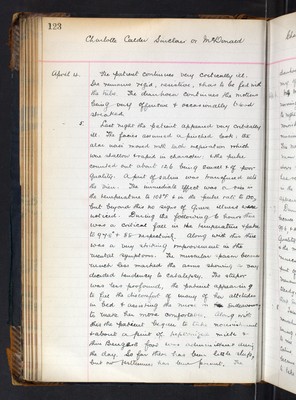 123
Charlotte Calder Sinclair or McDonald
April 4. The patient continues very critically ill.
She remains rigid, resistive, & has to be fed with
the tube. The diarrhoea continues the motions
being very offensive & occasionally blood
streaked.
5. Last night the patient appeared very critically
ill. The facies assumed a pinched look; the
alae nasi moved with each inspiration which
was shallow & rapid in character: the pulse
counted out about 126 being small & of poor
quality. A pint of saline was transfused into
the vein. The immediate effect was a rise in
the temperature to & in the pulse rate to
but beyond this no signs of illness were
noticed. During the following 6 hours there
was a critical fall in the temperature & pulse
to & 88 respectively. Along with this there
was a very striking improvement in the
mental symptoms. The muscular spasm became
much less marked the arms showing a very
decided tendency to catalepsy. The stupor
was less profound, the patient appearing
to feel the discomfort of many of her attitudes
in bed & assisting the nurse in endeavours
to make her more comfortable. Along with
this the patient began to take nourishment
& about a pint of peptonized milk &
thin Benger's food was administered during
the day. So far there has been little sleep,
but no has been found. The